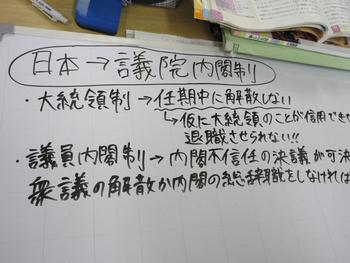 日本→議院内閣制
・大統領制→任期中に解散しない
↳仮に大統領のことが信用できな
退職させられない!!
・議員内閣制→内閣不信任の決議が可決
衆議の解散か内閣の総辞職をしなければ